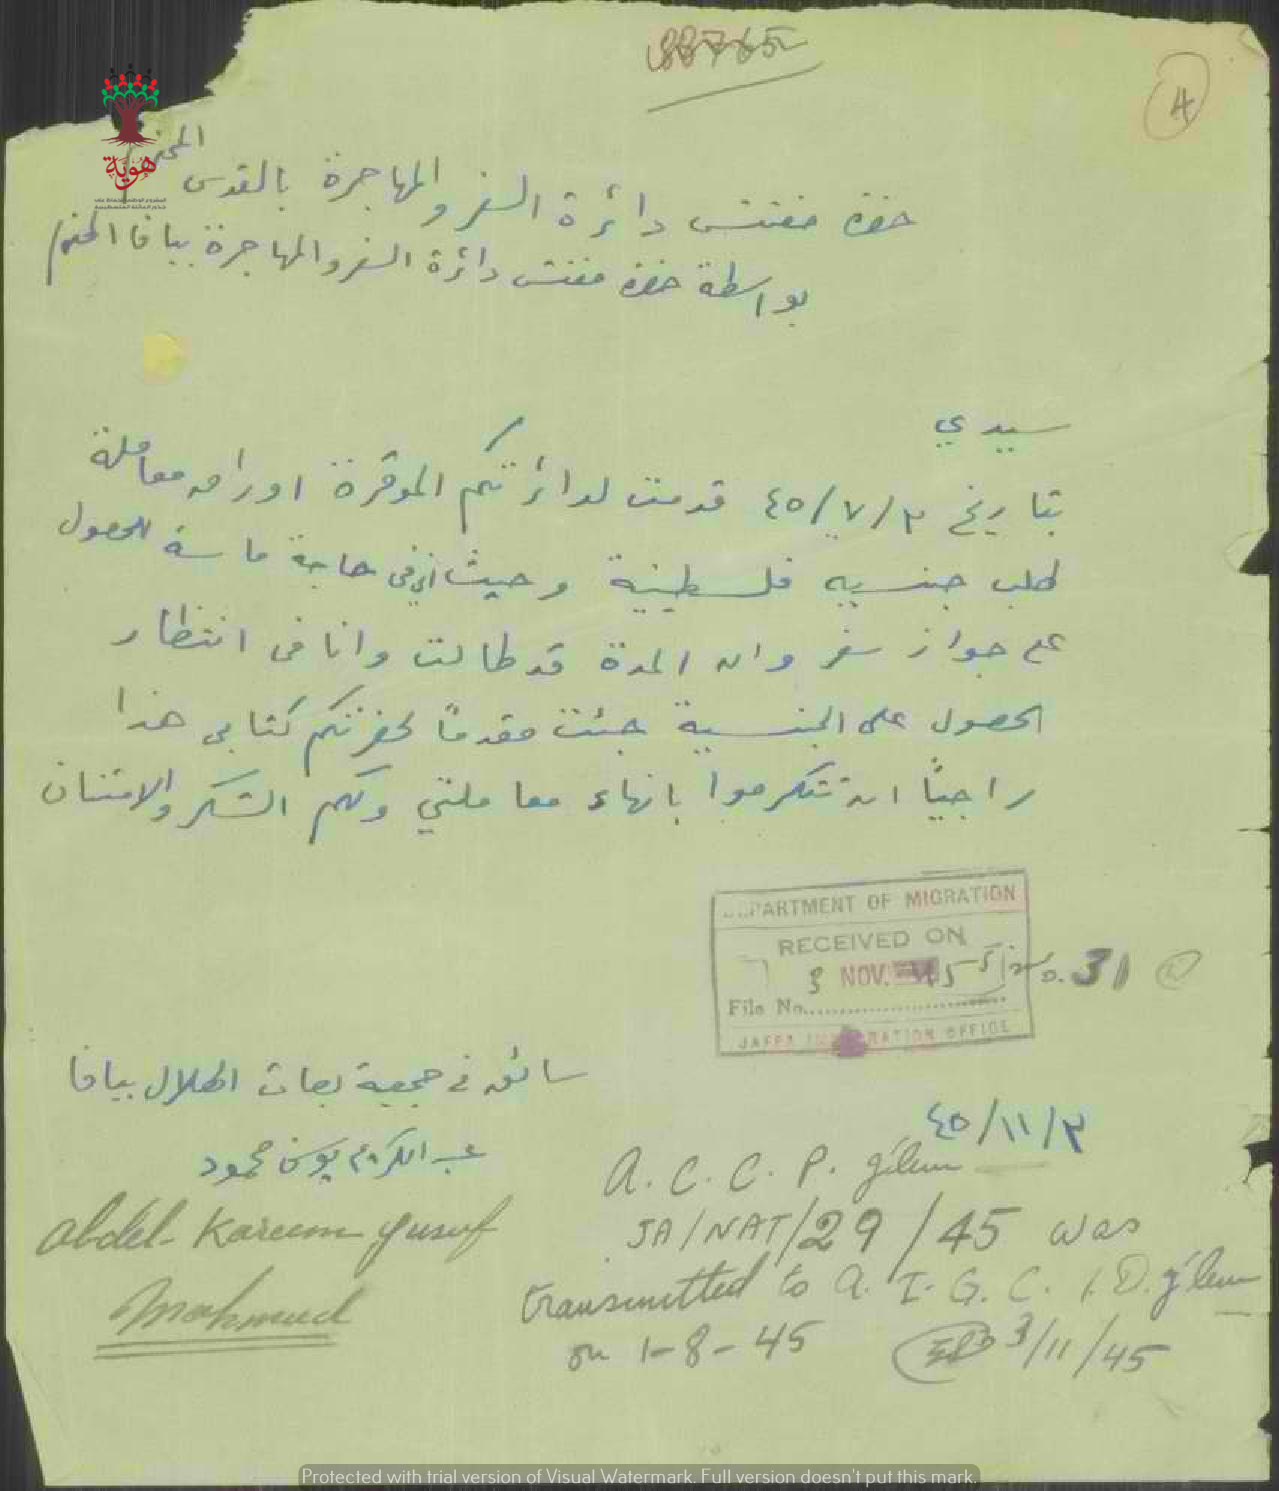 88765
4
حضرة مفتش دائرة السفر والمهاجرة بالقدس المحترم
بواسطة حضرة مفتش دائرة السفر والمهاجرة بيافا المحترم
هوية
سيدي
بتاريخ ٣/٧/٤٥ قدمت لدائرتكم الموقرة اوراق معاملة
لطلب جنسيه فلسطينية وحيث أني في حاجة ماسة للحصول
على جواز سفر وان المدة قد طالت وانا في انتظار
الحصول على الجنسية جئت مقدماً لحضرتكم كتابي هذا
راجياً ان تتكرموا بانهاء معاملتي ولكم الشكر والامتنان
DEPARTMENT OF MIGRATION
RECEIVED ON
3 NOV. 45
File No.
JAFFA IMMIGRATION OFFICE
31
سائق في جمعية الهلال بيافا
٣/١١/٤٥
عبد الكريم يوسف محمود
Abdel-Kareem Yusuf
Mahmud
A.C.C.P. J'lem
JA/NAT/29/45 was
transmitted to A.I.G.C.I.D. J'lem
on 1-8-45
3/11/45
Protected with trial version of Visual Watermark. Full version doesn't put this mark.